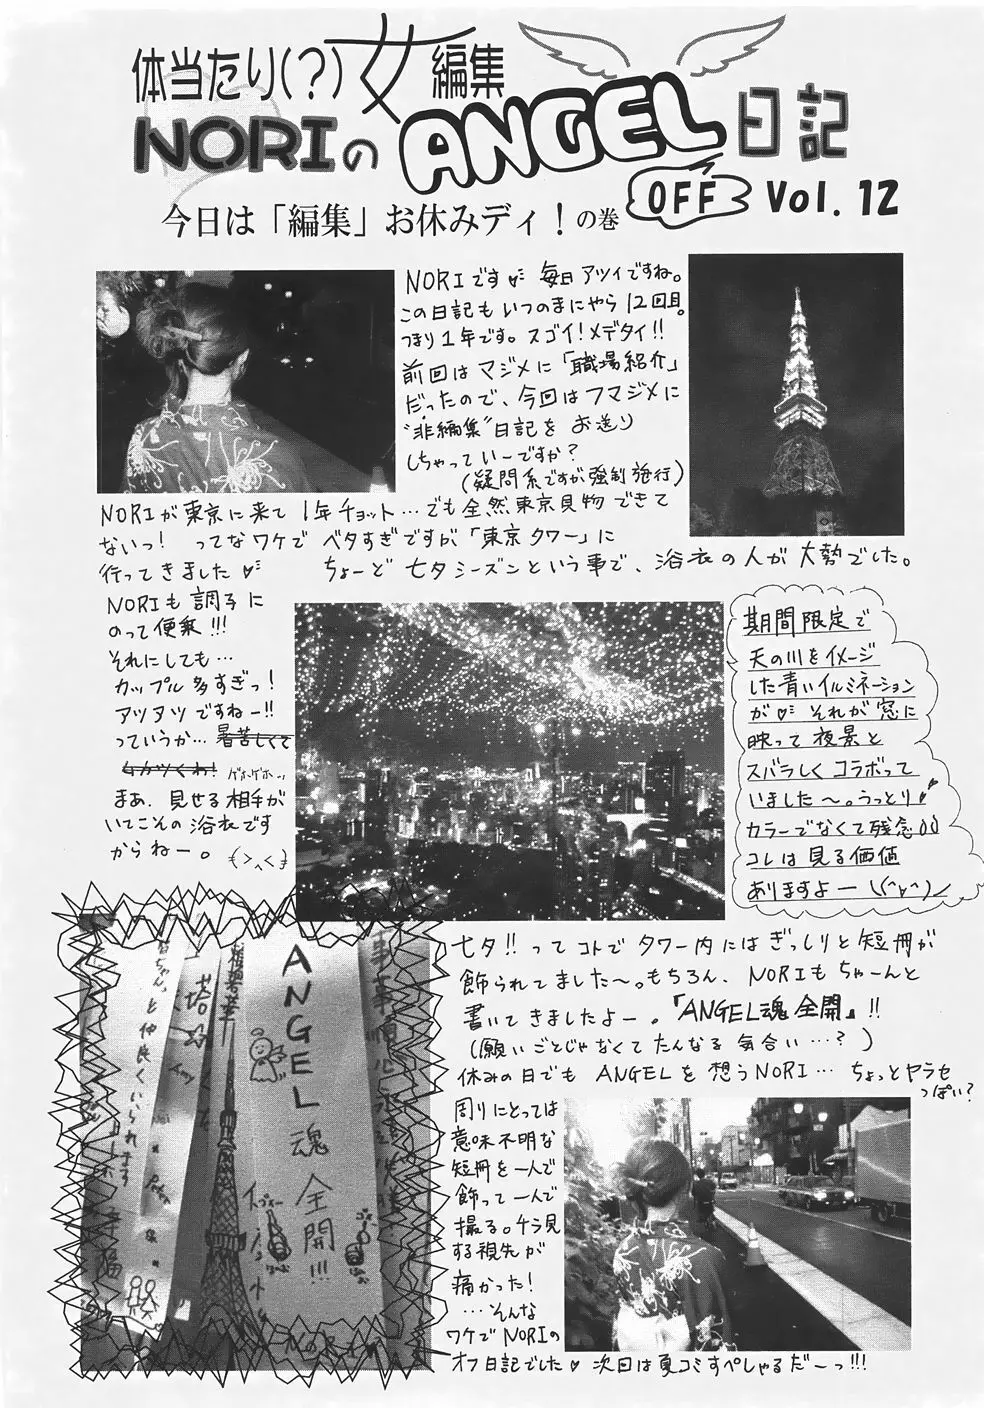 体当たり(?)女編集
NORIのANGEL日記
OFF Vol. 12
今日は「編集」お休みディ!の巻
NORIです 毎日アツイですね。
この日記もいつのまにやら12回目。
つまり1年です。スゴイ!メデタイ!!
前回はマジメに「職場紹介」
だったので、今回はフマジメに
"非編集"日記をお送り
しちゃっていーですか?
(疑問系ですが強制発行)
NORIが東京に来て1年チョット…でも全然東京見物できて
ないっ! ってなワケで ベタすぎですが「東京タワー」に
行ってきました♡ ちょーど七夕シーズンという事で、浴衣の人が大勢でした。
NORIも調子に
のって便乗!!!
それにしても…
カップル多すぎっ!
アツアツですねー!!
っていうか…暑苦しくて
ムカツくわ! ゲホゲホ…
まあ、見せる相手が
いてこその浴衣です
からねー。(>_<)
期間限定で
天の川をイメージ
した青いイルミネーション
が♡ それが窓に
映って夜景と
スバラしくコラボって
いました〜。うっとり♪
カラーでなくて残念
コレは見る価値
ありますよー \(^v^)/
七夕!!ってコトでタワー内にはぎっしりと短冊が
飾られてました〜。もちろん、NORIもちゃーんと
書いてきましたよー。「ANGEL魂全開」!!
(願いごとじゃなくてたんなる気合い…?)
休みの日でもANGELを想うNORI… ちょっとヤラセ
っぽい?
周りにとっては
意味不明な
短冊を一人で
飾って一人で
撮る。チラ見
する視先が
痛かった!
…そんな
ワケでNORIの
オフ日記でした♡ 次回は夏コミすぺしゃるだーっ!!!
ANGEL魂全開!!!
ちゃんと仲良くいられます
塔☆
Amy
Peter